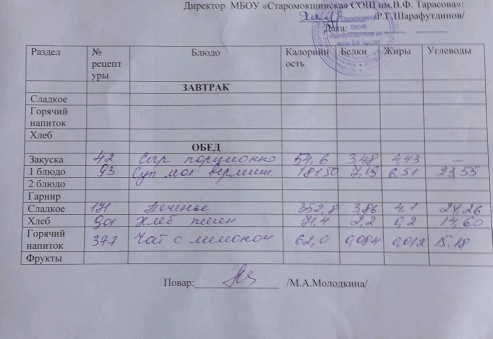 Директор МБОУ «Старомокшинская СОШ им.В.Ф. Тарасова»:
/Р.Г.Шарафутдинов/
Дата:
Раздел № рецептуры Блюдо Калорийность Белки Жиры Углеводы
ЗАВТРАК
Сладкое
Горячий напиток
Хлеб
ОБЕД
Закуска 42 Сыр порционно 54,6 3,48 4,43 —
1 блюдо 93 Суп мол вермиш. 7,15 6,51 23,55
2 блюдо
Гарнир
Сладкое 171 Печенье 352,8 3,86 4,1 24,26
Хлеб 901 Хлеб пшен 71,4 2,2 0,2 14,60
Горячий напиток 377 Чай с лимоном 62,0 0,084 0,012 15.18
Фрукты
Повар: /М.А.Молодкина/